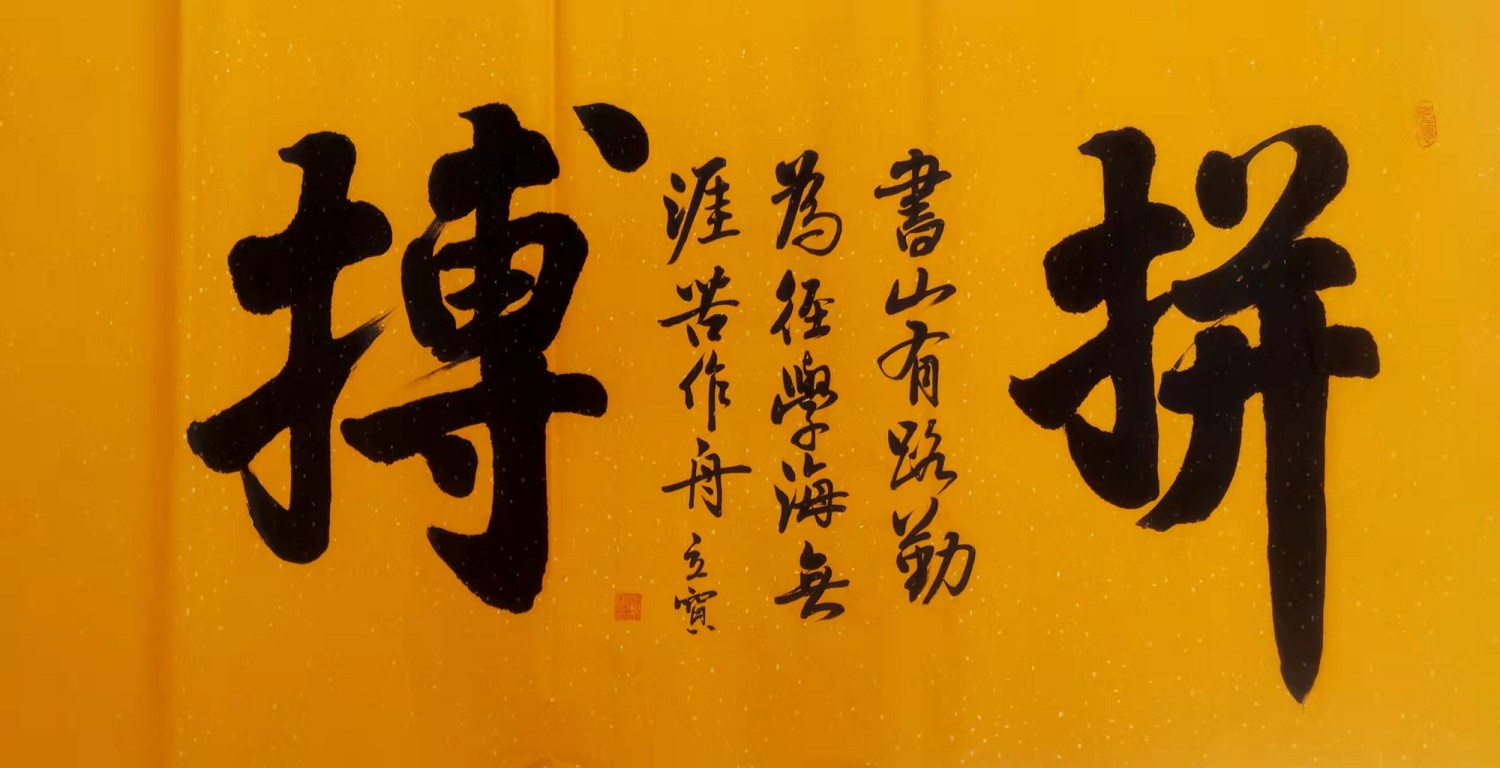 拼
書山有路勤
為徑學海無
涯苦作舟
立寶
搏